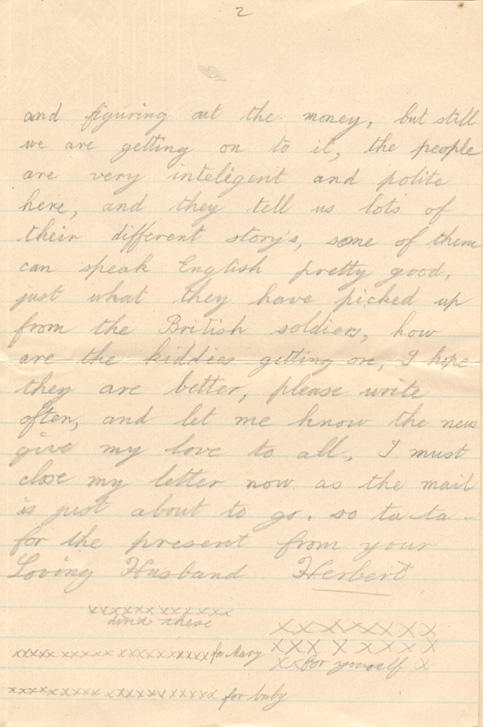 2
and figuring out the money, but still
we are getting on to it, the people
are very inteligent and polite
here, and they tell us lots of
their different story's, some of them
can speak English pretty good,
just what they have picked up
from the British soldiers, how
are the kiddies getting on, I hope
they are better, please write
often, and let me know the news
give my love to all, I must
close my letter now as the mail
is just about to go. so ta-ta.
for the present from your
Loving Husband Herbert
xxxxxxxxxxxxxx
and these
xxxx xxxxxx xxxxxx xxxxxx for Mary
xxxx xxxxxx xxxxxxxxx for baby
XXXXXXXX
XXX XXXXX
XX for yourself X